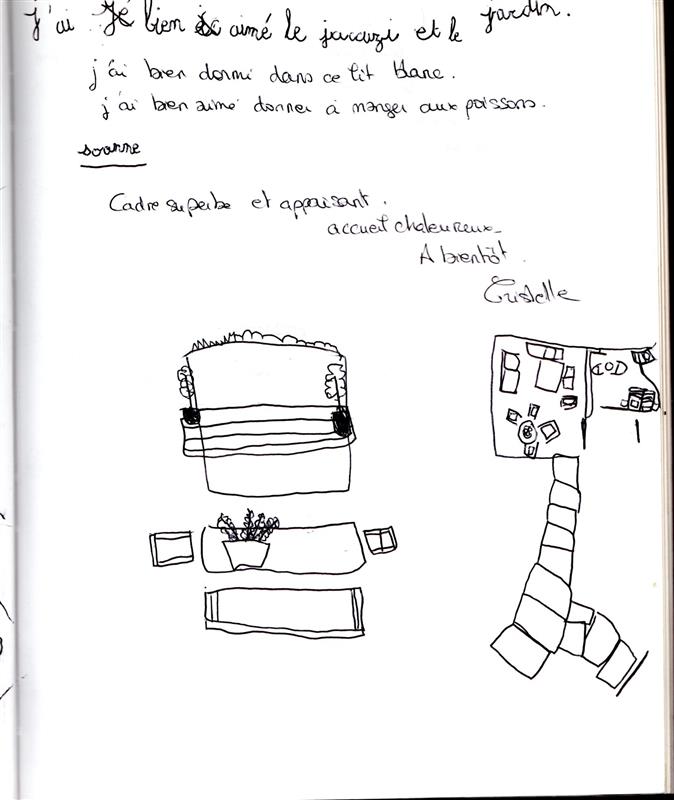 J'ai Je bien aimé le jacuzi et le jardin.
j'ai bien dormi dans ce lit blanc.
j'ai bien aimé donner à manger aux poissons.
Cadre superbe et appaisant.
accueil chaleureux.
A bientôt.
Cristelle